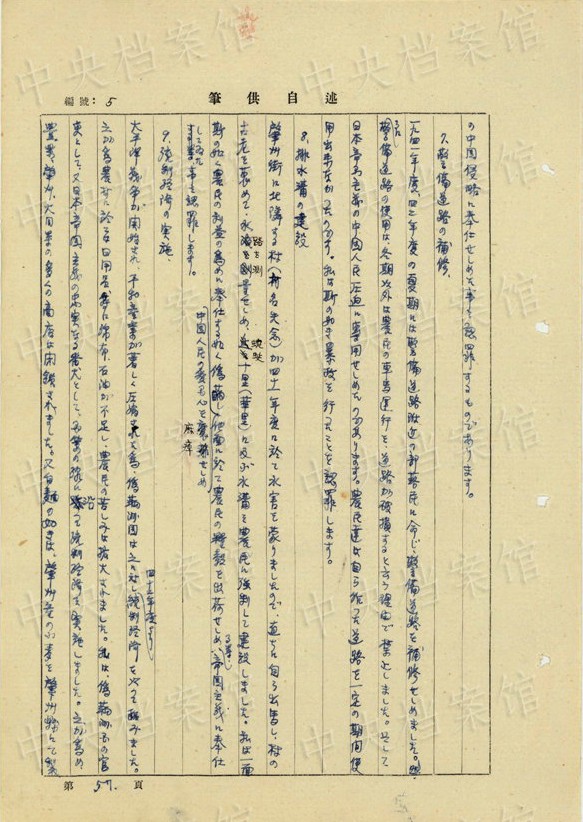 編號: 5
筆供自述
の中国侵略に奉仕せしめた事を認罪するものであります。
7. 警備道路の補修、
一九四一年度、四二年度の夏期には警備道路附近の部落民に命じ、警備道路を補修せしめました。
警備道路の使用は、冬期以外は農民の車馬運行を、道路が破損すると言ふ理由で禁止しました。そして
日本帝国主義の中国人民圧迫に専用せしめたのであります。農民達は自ら作った道路を一定の期間使
用出来なかったのです。私は斯の如き暴政を行ったことを認罪します。
8. 排水溝の建設
肇州街に地隣する村(村名失念)が四十一年度に於て水害を蒙りましたので、直ちに自ら出馬し、村の
古老を集めて、水路を測量せしめ、延々十里(華里)に及ぶ水溝を農民に強制して建設しました。私は一面
斯の如く農民の利益の為めに奉仕する如く偽瞞し、他面に於て農民の糧穀を出荷せしめ、帝国主義に奉仕
中国人民の愛国心を麻痺せしめ
する事を認罪します。
9. 統制経済の実施、
四十二年度より
太平洋戦争が開始され、平和産業が著しく圧縮された為、偽満洲国は之に対し統制経済を以て臨みました。
之が為農村に於ては日用品、特に綿布、石油が不足し、農民の苦しみは拡大されました。私は、偽満洲国の官
吏として、又日本帝国主義の忠実なる番犬として、統制経済を実施しました。之が為め、
豊楽、肇州、大同等の多くの商店は閉鎖されました。又白麺の如きは、肇州産の小麦を肇州
第 57. 頁
中央档案馆